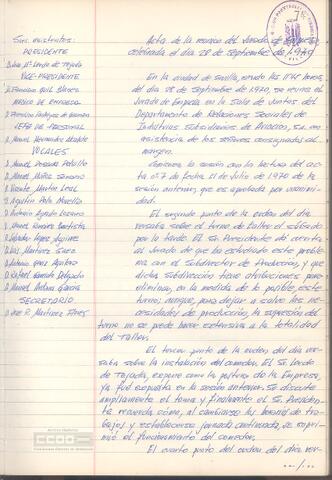 Sres. asistentes:
PRESIDENTE
VICE-PRESIDENTE
D. Francisco
MEDICO DE EMPRESA
D. Francisco Rodríguez de
JEFE DE PERSONAL
D. Manuel Hernández
VOCALES
D. Manuel Posada
D. Manuel Muñoz Serrano
D. Vicente Martín Leal
D. Agustín
D. Antonio Agudo Lozano
D. Manuel Ramírez Bautista
D. Salvador López Aguirre
D. Luis Martínez Sáez
D. Antonio Ayas Aguilar
D. Rafael Delgado
D. Manuel García
SECRETARIO
D. José R. Martínez
Acta de la reunión del Jurado de Empresa
celebrada el día 28 de septiembre de 1970
En la ciudad de Sevilla, siendo las horas,
del día 28 de septiembre de 1970, se reunió el
Jurado de Empresa en la Sala de Juntas del
Departamento de Relaciones Sociales de
Industrias Subsidiarias de Aviación, S.A. con
asistencia de los señores consignados al
margen.
Comienza la sesión con la lectura del ac-
ta nº 7 de fecha 21 de Julio de 1970 de la
sesión anterior, que es aprobada por unanimi-
dad.
El segundo punto de la orden del día
versaba sobre el turno de Taller el sábado
por la tarde. El Sr. Presidente dió cuenta
al Jurado de que ha estudiado este proble-
ma con el Subdirector de Producción, y que
dicha subdirección tiene atribuciones para
eliminar, en la medida de lo posible, este
turno, aunque, para dejar a salvo las ne-
cesidades de producción, la supresión del
turno no se puede hacer extensiva a la totalidad
del Taller.
El tercer punto de la orden del día ver-
saba sobre la instalación del comedor. El Sr. Conde
de Tejada, expone cómo la postura de la Empresa,
ya fué expuesta en la sesión anterior. Se discute
ampliamente el tema y finalmente el Sr. Presiden-
te recuerda cómo, al cambiarse los horarios de tra-
bajos y establecerse jornada continuada, se supri-
mió el funcionamiento del comedor.
El cuarto punto del orden del día ver-
../...
Archivo Histórico
CCOO